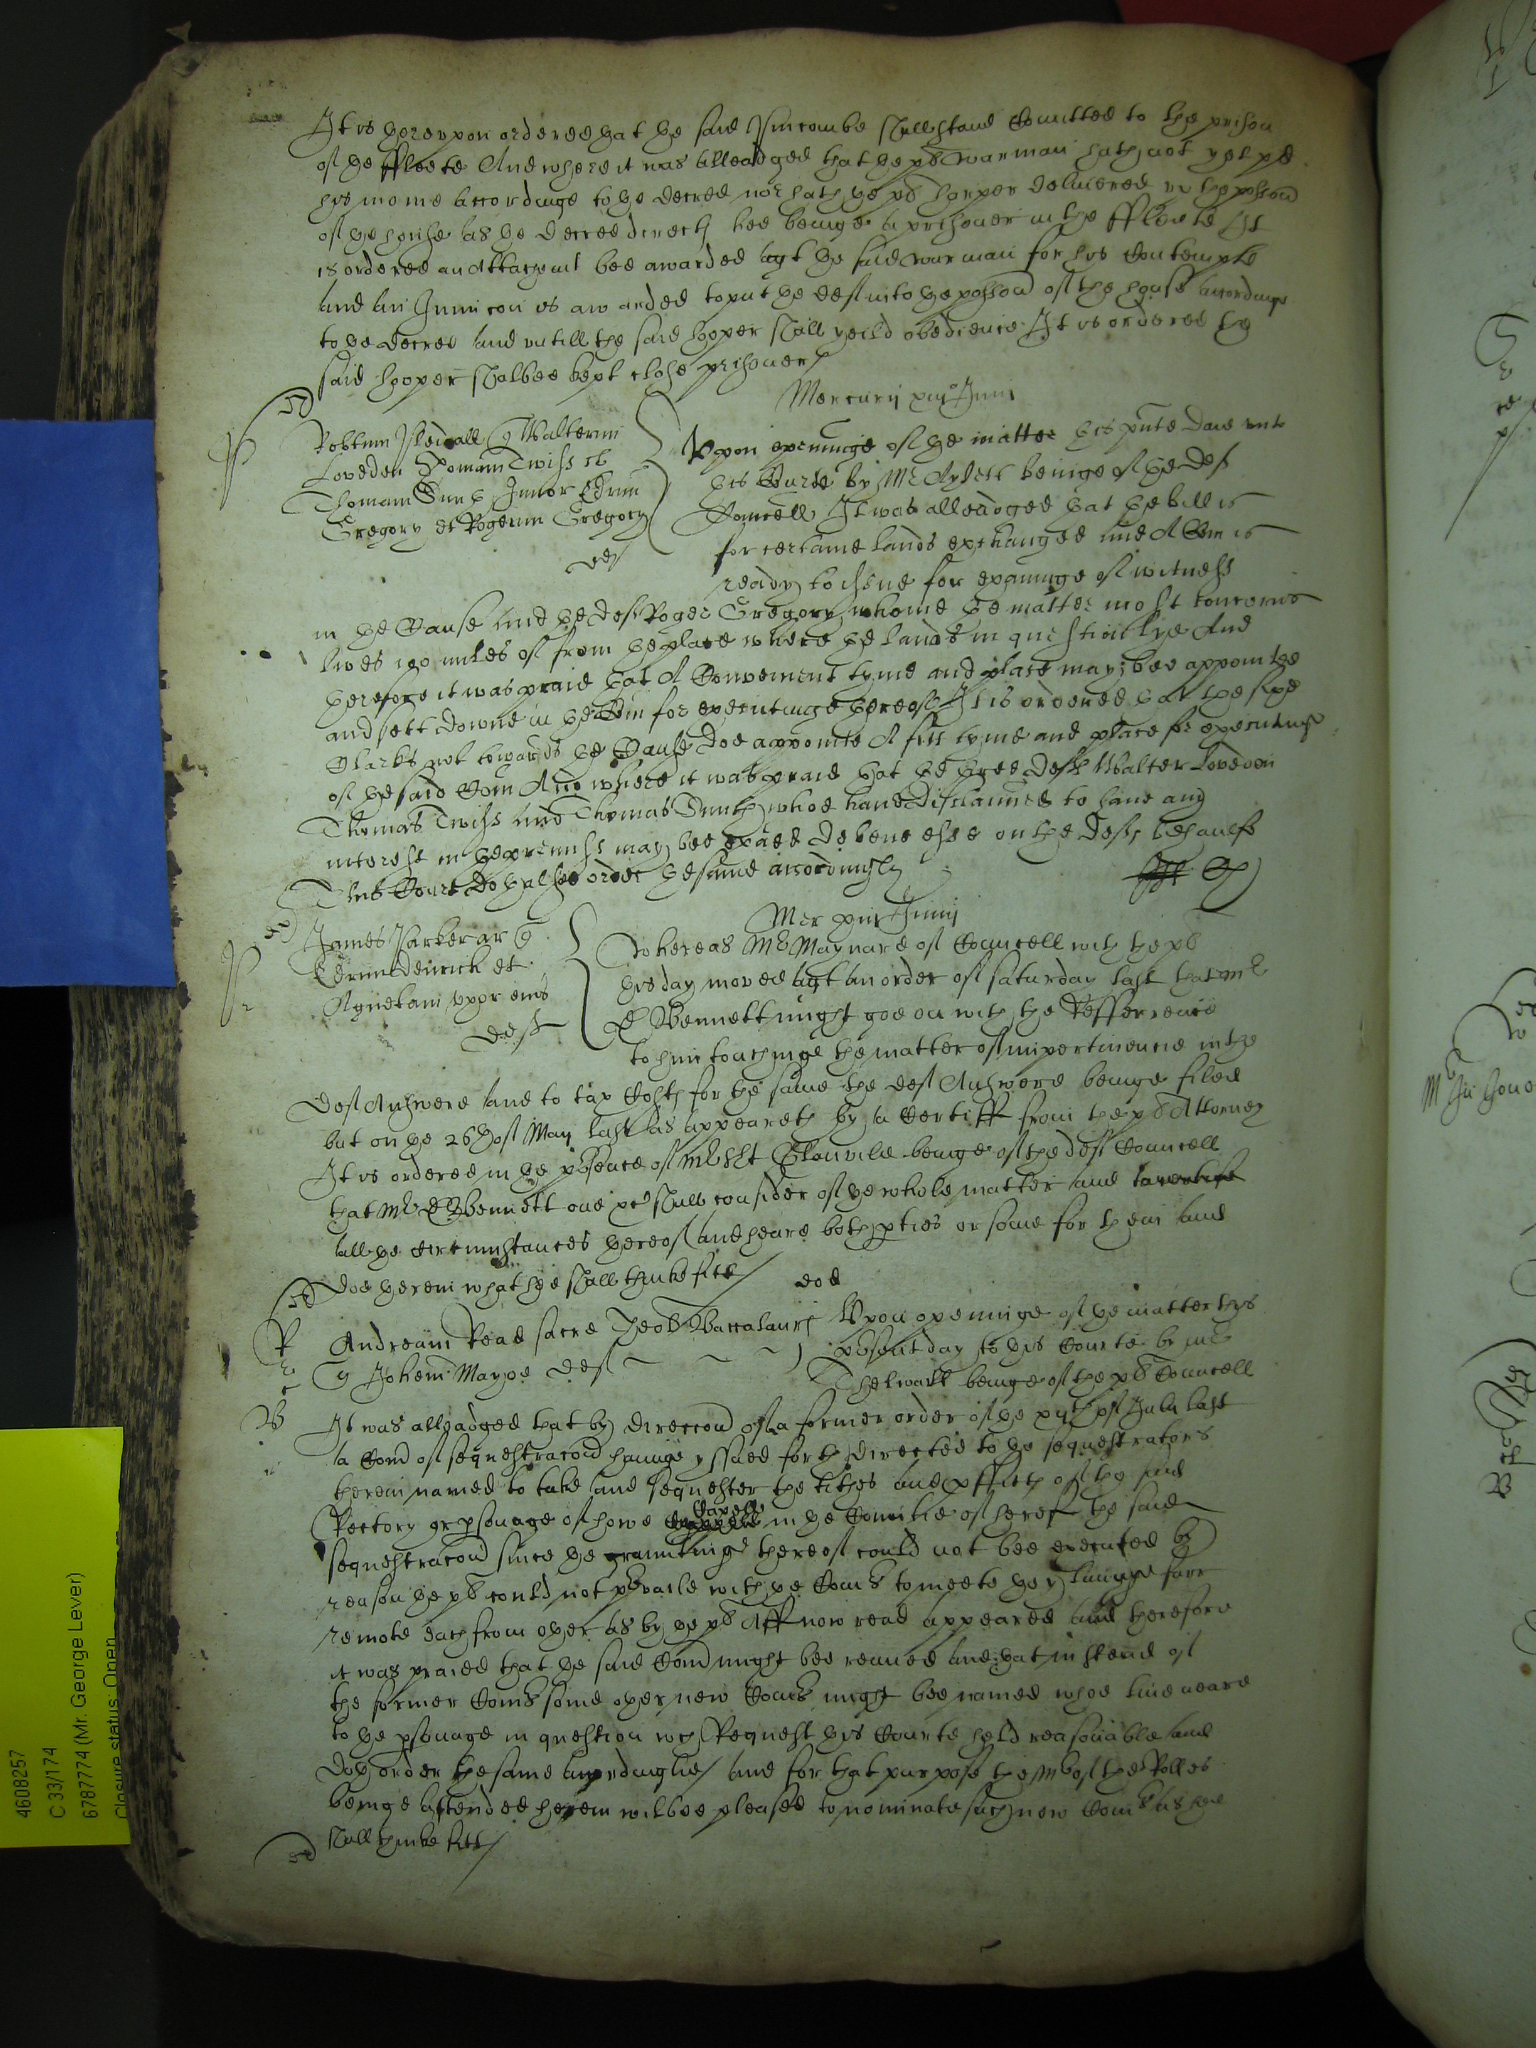 It is hereupon ordered that the said Pincombe shall stand Comitted to the prison
of the ffleete And where it was alleadged that the pl Warman hath not yet pd
his monie accordinge to the decree nor hath the pl hooper delivered up the possion
of the house as the decree directs hee beinge a prisoner in the ffleete It
is ordered an Attachmt bee awarded agt the said Warman for his Contempte
and an Iniunccon is awarded to put the deft into the possion of the house accordinge
to the decree and untill the said hooper shall yeild obedience It is ordered the
said hooper shalbee kept close prisoner
Mercurij xiijo Junij
Robtum Pleidall q Walterum
Loveden Thomam Twiss et
Thomam Smith Junior Edrum
Gregory et Rogerum Gregory
def
Upon openinge of the matter this pnte daie unto
this Courte by Mr Aylett beinge of the def
Councell It was alleadged that the bill is
for certaine lands exchanged and A Com is
ready to issue for examinge of witness
in the Cause and the def Roger Gregory whome the matter most concernes
lives 140 miles of from the place where the lands in question lye And
therefore it was praid that A Convenient tyme and place may bee appointed
and sett downe in the Com for executinge thereof It is ordered that the sixe
Clarks not towards the Cause doe appointe A fitt tyme and place for executinge
of the said Com And where it was praid that the three defts Walter Loveden
Thomas Twiss and Thomas Smith whoe have disclaimed to have any
interest in the premiss may bee exaied de bene esse on the defts behaulfe
This Court doth alsoe order the same accordingly
Mer xiij Junij
James Parker ar q
Edrum denrick et
Agnetam uxor eius
deft
Whereas Mr Maynard of Councell with the pl
this day moved agt an order of saturday last that Mr
D Bennett might goe on with the Refference
to him touchinge the matter of impertinencie in the
def Answere and to tax Costs for the same the def Answere beinge filed
but on the 26th of May last as appeareth by a Certiff from the pl Attorney
It is ordered in the psence of Mr Sjt Glanvile beinge of the def Councell
that Mr D Bennett one xt shall consider of the whole matter and
all the circumstances thereof and heare both pties or some for them and
doe therein what hee shall thinke fitt
eod
Andream Read sacre Theol Baccalaur
q Johem Mayoe def
Upon openinge of the matter this
psent day to this Courte by Mr
Thelwall beinge of the pl Councell
It was alleadged that by direccon of a former order of the xijth of July last
a Comd of sequestracon havinge yssued forth directed to the sequestrators
therein named to take and sequester the tithes and pffitts of the said
Rectory or psonage of howe Capell in the Countie of heref the said
sequestracon since the grauntinge thereof could not bee executed by
reason the pl could not pvaile with the Comrs to meete they livinge farr
remote each from other as by the pl Aff now read appeared and therefore
it was praied that the said Comd might bee renued and that in stead of
the former Comrs some other new Comrs might bee named whoe live neare
to the psonage in question wch Request this Courte held reasonable and
doth order the same accordinglie and for that purpose the Mr of the Rolles
beinge attended herein wilbee pleased to nominate such new Comrs as hee
shall thinke fitt
4608257
C 33/174
6787774 (Mr. George Lever)
Closure status: Open